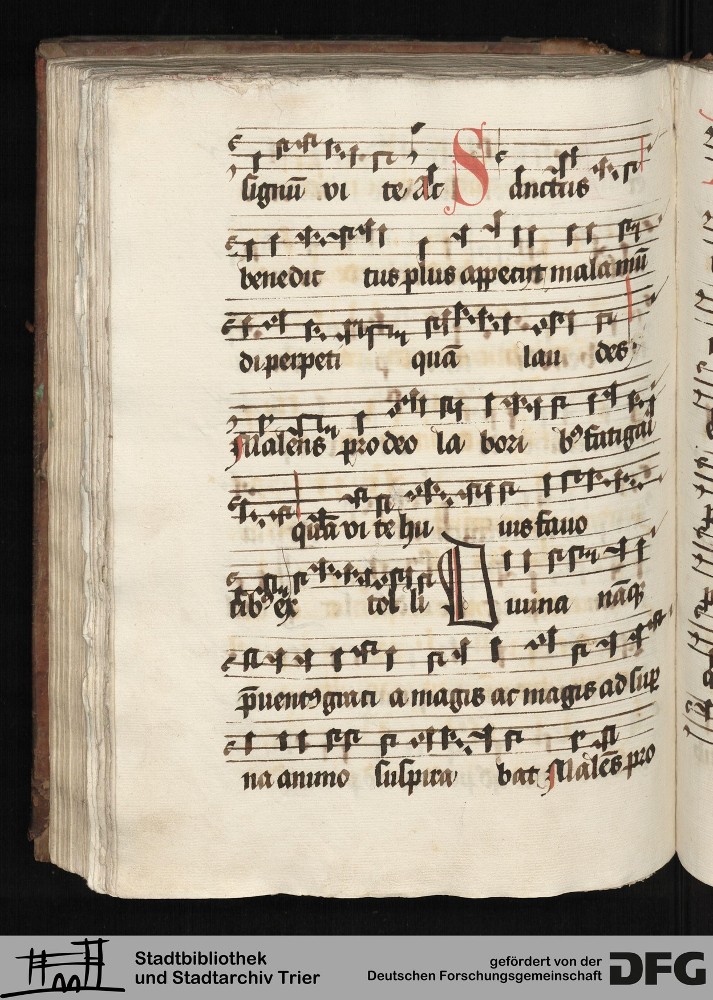 signū vi te Ac Sanctus
benedic tus plus appetijt mala mū
di perpeti quā lau des
Malēns pro deo la bori bꝰ fatigari
quā vi te hu ius fauo
ribꝰ ex tol li Diuina nāqꝫ
p̄uentꝰ grati a magis ac magis ad suꝑ
na animo suspira bat Malēs pro
Stadtbibliothek
und Stadtarchiv Trier
gefördert von der
Deutschen Forschungsgemeinschaft
DFG